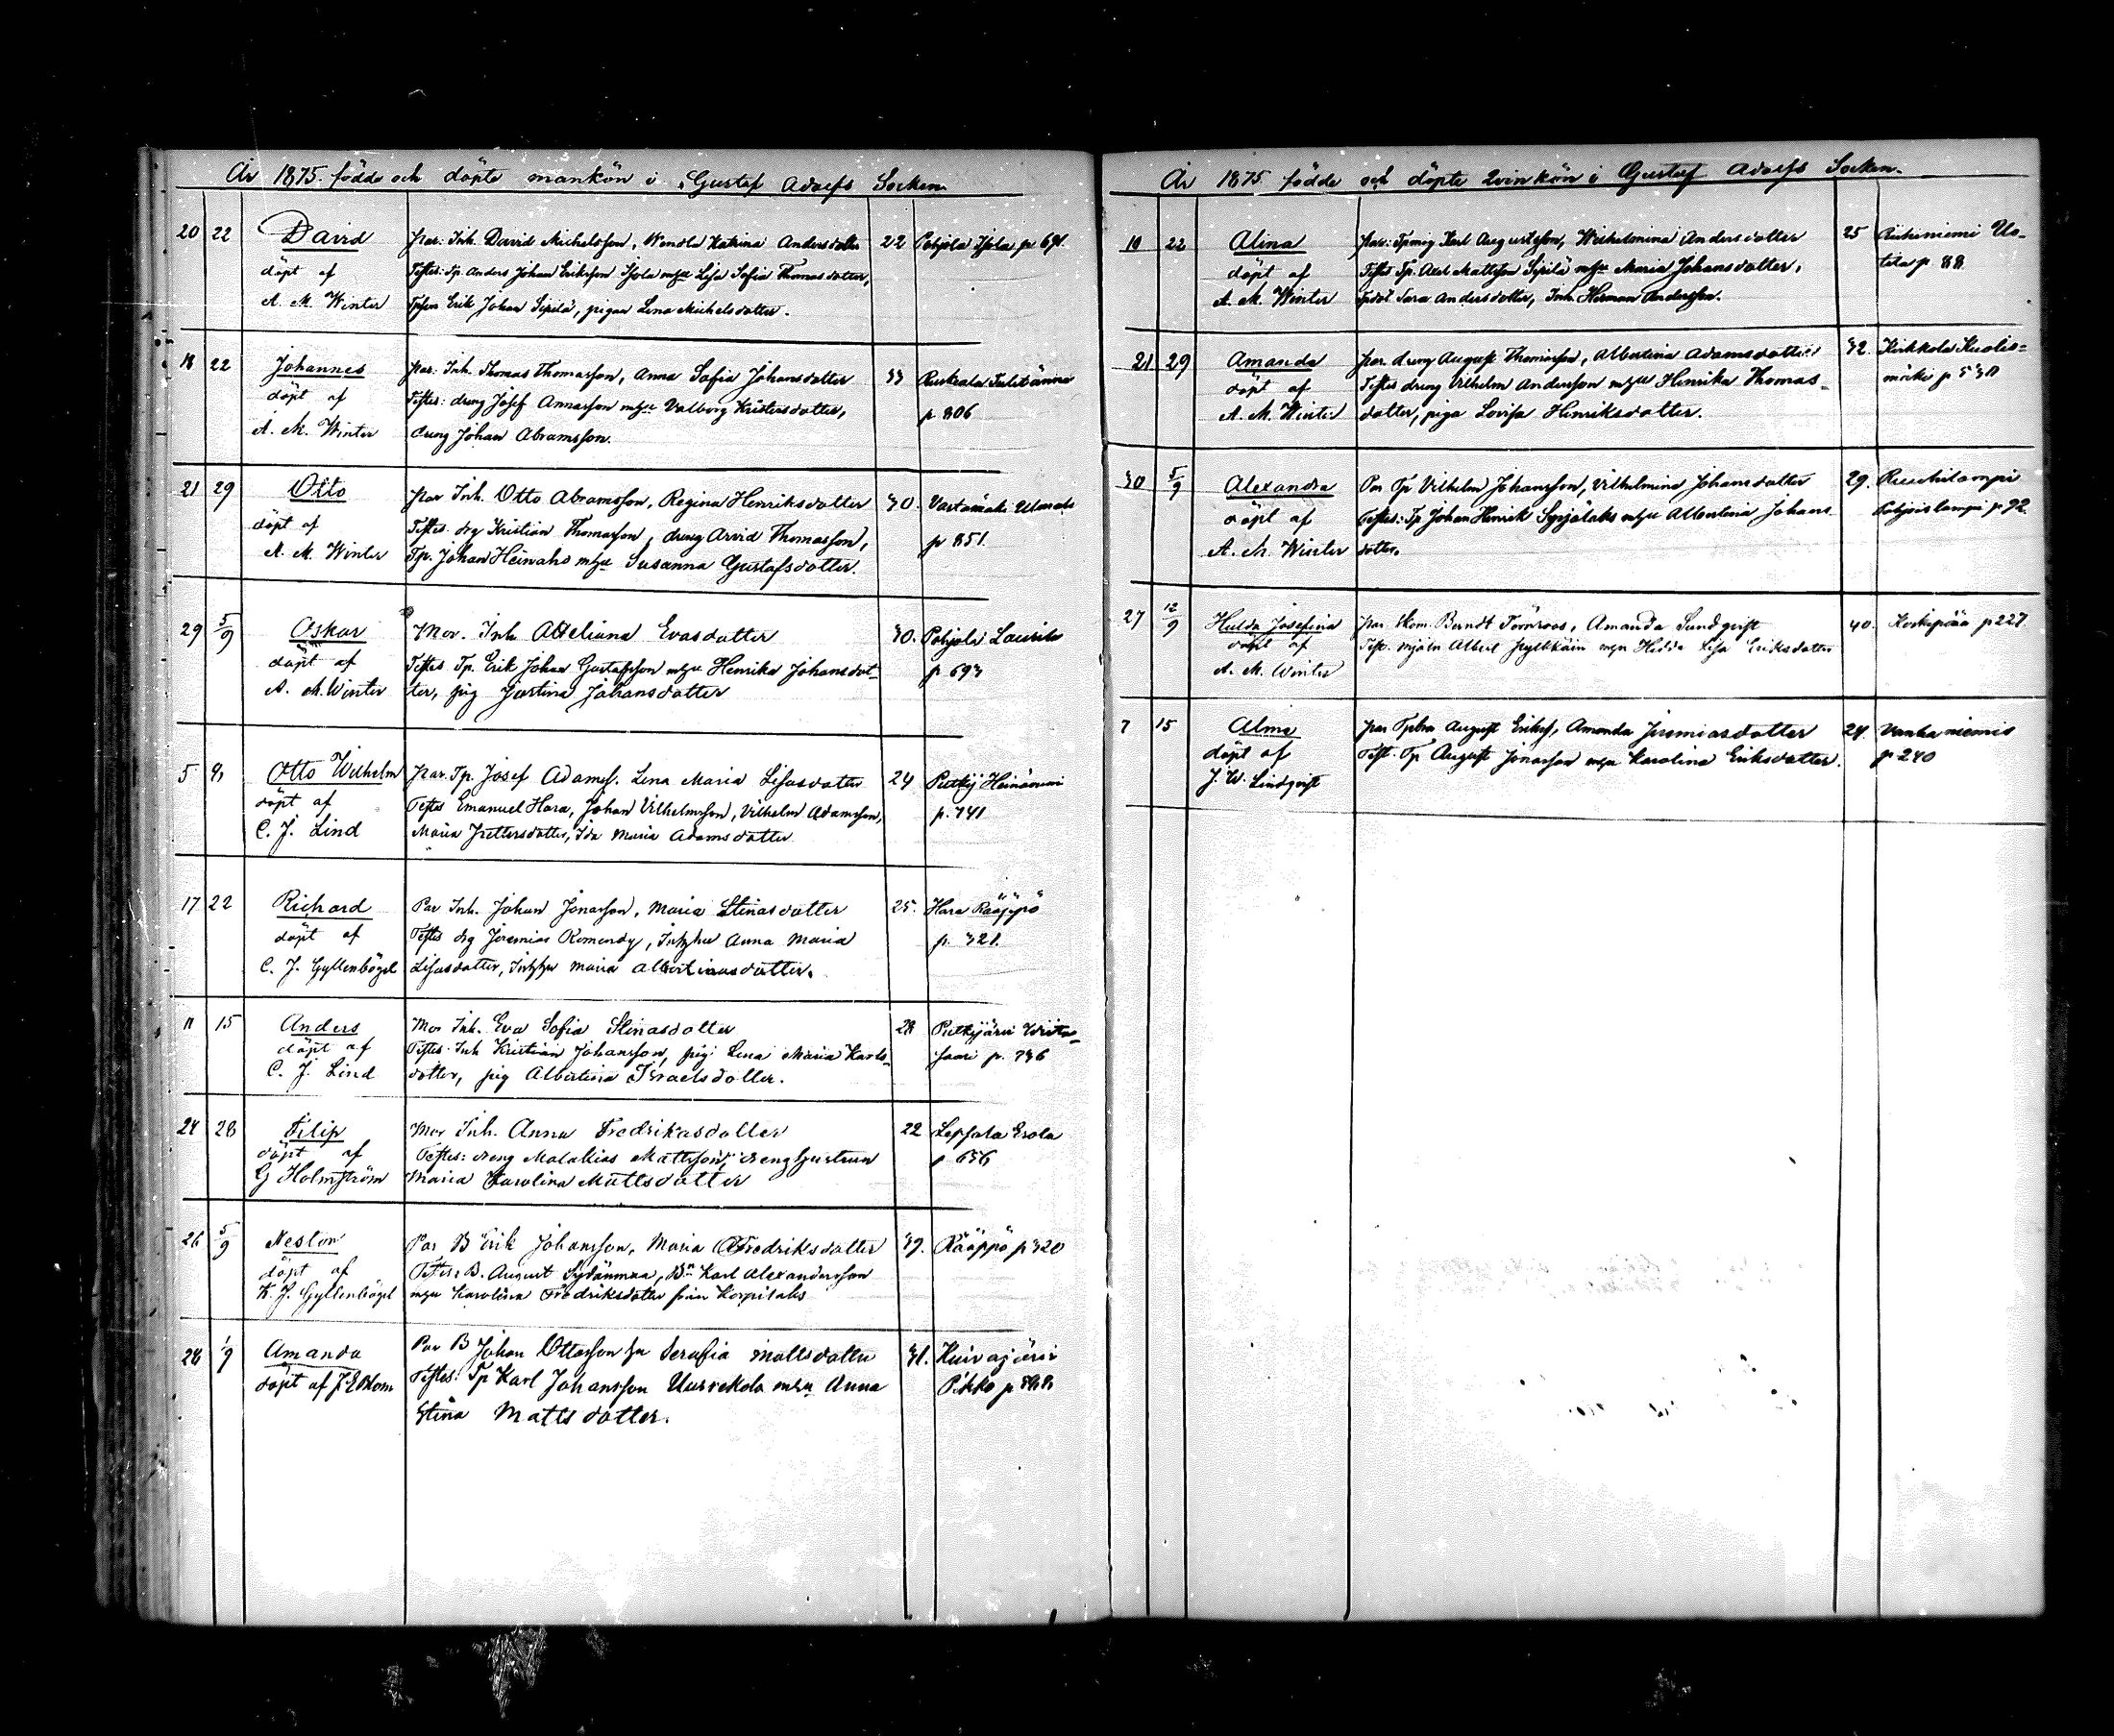 År 1875 födde och döpte mankön i Gustaf Adolfs Socken
20 22 David par: Inh. David Michelsson, Wendla Katrina Andersdotter 22 Pohjola Isola p 691
döpt af Testes: Tp. Anders Johan Eriksson Isola mhu Lisa Sofia Thomasdotter,
A. M. Winter Tpson Erik Johan Sipilä, pigan Lena Michelsdotter.
18 22 Johannes par: Inh. Thomas Thomasson, Anna Sofia Johansdotter 33 Ruskeala
döpt af Testes: dreng Josef Annasson mhu Valborg Kristersdotter, p 806
A. M. Winter dreng Johan Abramsson.
21 29 Otto par Inh. Otto Abramsson, Regina Henriksdotter 30.
döpt af Testes drg Kristian Thomasson, dreng Arvid Thomasson, p 851
A. M. Winter Tp. Johan Heinaho mhu Susanna Gustafsdotter.
29 5/9 Oskar Mor. Inh. Evasdotter 30. Pohjola Laurila
döpt af Testes Tp. Erik Johan Gustafsson mhu Henrika Johansdot- p 693
A. M. Winter ter, pig Justina Johansdotter
5 Otto Wilhelm Par. Tp. Josef Adamss. Lena Maria Lisasdotter 24
döpt af Testes Emanuel Hara, Johan Vilhelmsson, Vilhelm Adamsson, p. 741
C. J. Lind Maria Pettersdotter, Ida Maria Adamsdotter
17 22 Richard Par Inh. Johan Jonasson, Maria Stinasdotter 25. Hara Rääppö
döpt af Testes drg Jeremias, Anna Maria p. 321.
C. J. Gyllenbögel Lisasdotter, Maria Albertinasdotter.
11 15 Anders Mor Inh. Eva Sofia Stinasdotter 28
döpt af Testes Inh Kristian Johansson, pig: Lena Maria Karls- saari p. 736
C. J. Lind dotter, pig Albertina Israelsdotter.
24 28 Filip Mor Inh. Anna Fredrikasdotter 22 Erola
döpt af Testes: dreng Malakias Mattsson, p 656
G Holmström Maria Karolina Mattsdotter
26 5/9 Nestor Par B Erik Johansson, Maria Fredriksdotter 39. Rääppö p 320
döpt af Testes B. August Sydänmaa, Bn Karl Alexandersson
K. J. Gyllenbögel mhu Karolina Fredriksdotter från Korpilaks
28 1/9 Amanda Par B Johan Ottosson hu Serafia Mattsdotter 31. Kuivajärvi
döpt af Testes: Tp Karl Johansson mhu Anna Pikko
Stina Matts dotter.
År 1875 födde och döpte qvinkön i Gustaf Adolfs Socken.
10 22 Alina par: Karl Augustsson, Wilhelmina Andersdotter 25
döpt af Testes Tp. Axel Mattsson Sipilä mhu Maria Johansdotter, p. 88
A. M. Winter Tpdot Sara Andersdotter, Inh. Herman Andersson.
21 29 Amanda par dreng August Thomasson, Albertina Adamsdotter 32. Kirkkola Kuolis-
döpt af Testes dreng Vilhelm Andersson mhu Henrika Thomas-
A. M. Winter dotter, piga Lovisa Henriksdotter.
30 5/9 Alexandra Par Tp Vilhelm Johansson, Vilhelmina Johansdotter 29.
döpt af Testes: Tp Johan Henrik Syrjälaks mhu Albertina Johans p. 92
A. M. Winter dotter.
27 12/9 Hulda Josefina par Berndt Törnroos, Amanda Sundqvist 40. Koskipää p 227
döpt af Test. Albert mhu Hedda Lisa Eriksdotter
A. M. Winter
7 15 Alma par August Erikss, Amanda Jeremiasdotter 24. Vanhaniemi
döpt af Test. Tp August Jonasson mhu Karolina Eriksdotter. p 240
J. W. Lindqvist